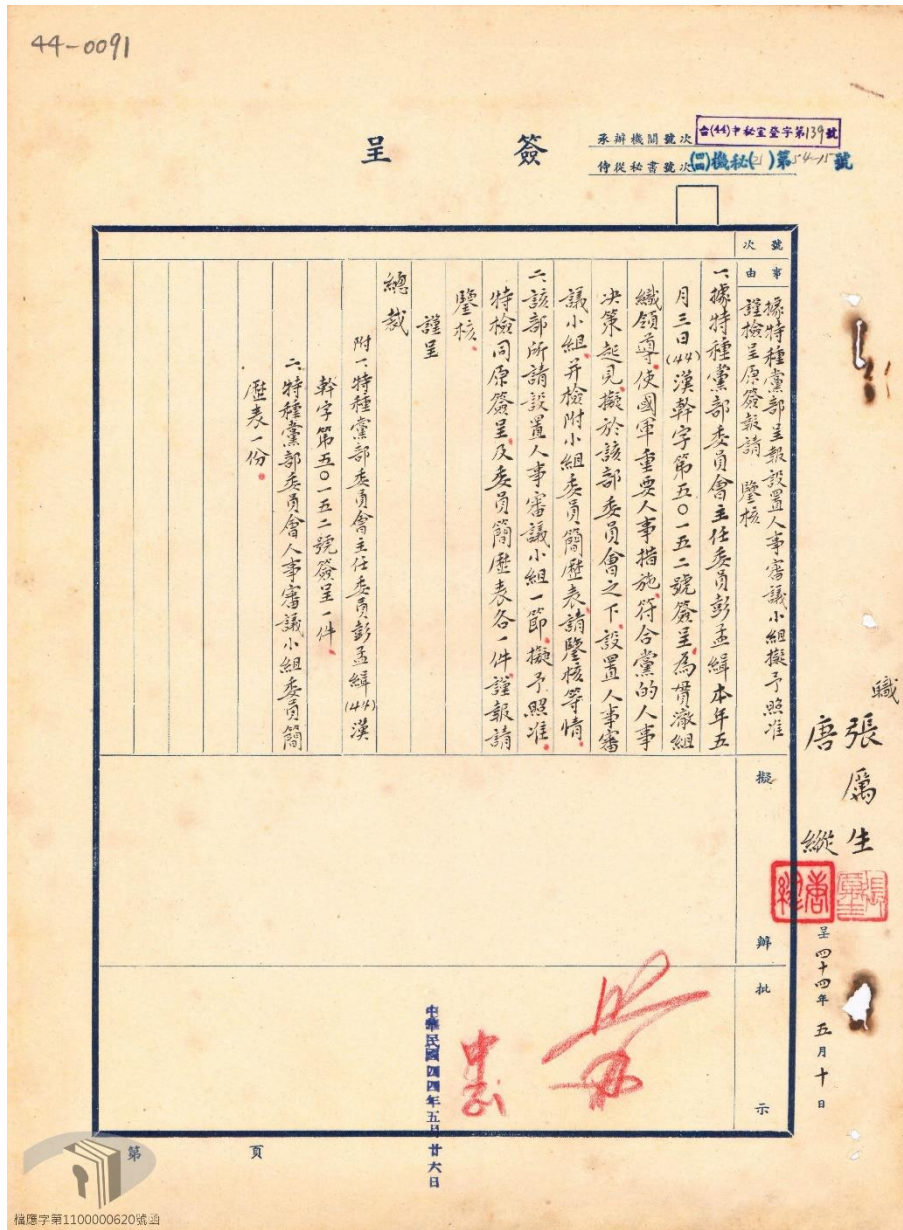 44-0091
簽呈
承辦機關號次 台(44)中秘室登字第139號
侍從秘書號次 (四)機秘(乙)第54-15號
號次
事由
據特種黨部呈報設置人事審議小組擬予照准
謹檢呈原簽報請 鑒核
一、據特種黨部委員會主任委員彭孟緝本年五
月三日(44)漢幹字第五〇一五二號簽呈為貫澈組
織領導使國軍重要人事措施符合黨的人事
決策起見擬於該部委員會之下設置人事審
議小組并檢附小組委員簡歷表請鑒核等情
二、該部所請設置人事審議小組一節擬予照准
特檢同原簽呈及委員簡歷表各一件謹報請
鑒核
謹呈
總裁
附一、特種黨部委員會主任委員彭孟緝(44)漢
幹字第五〇一五二號簽呈一件
二、特種黨部委員會人事審議小組委員簡
歷表一份
職
張厲生
唐縱
張厲生
唐縱
呈 四十四年五月十日
擬辦
批示
中正
中華民國四四年五月廿六日
第 頁
檔應字第1100000620號函